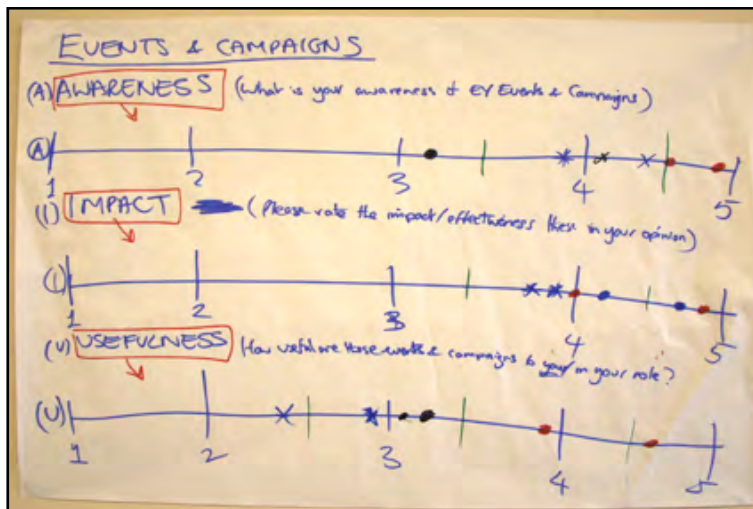 EVENTS & CAMPAIGNS
(A) AWARENESS (What is your awareness of EY Events & Campaigns)
(A)
1 2 3 4 5
(I) IMPACT (Please rate the impact/effectiveness these in your opinion)
(I)
1 2 3 4 5
(U) USEFULNESS (How useful are these & campaigns to you/in your role?
(U)
1 2 3 4 5